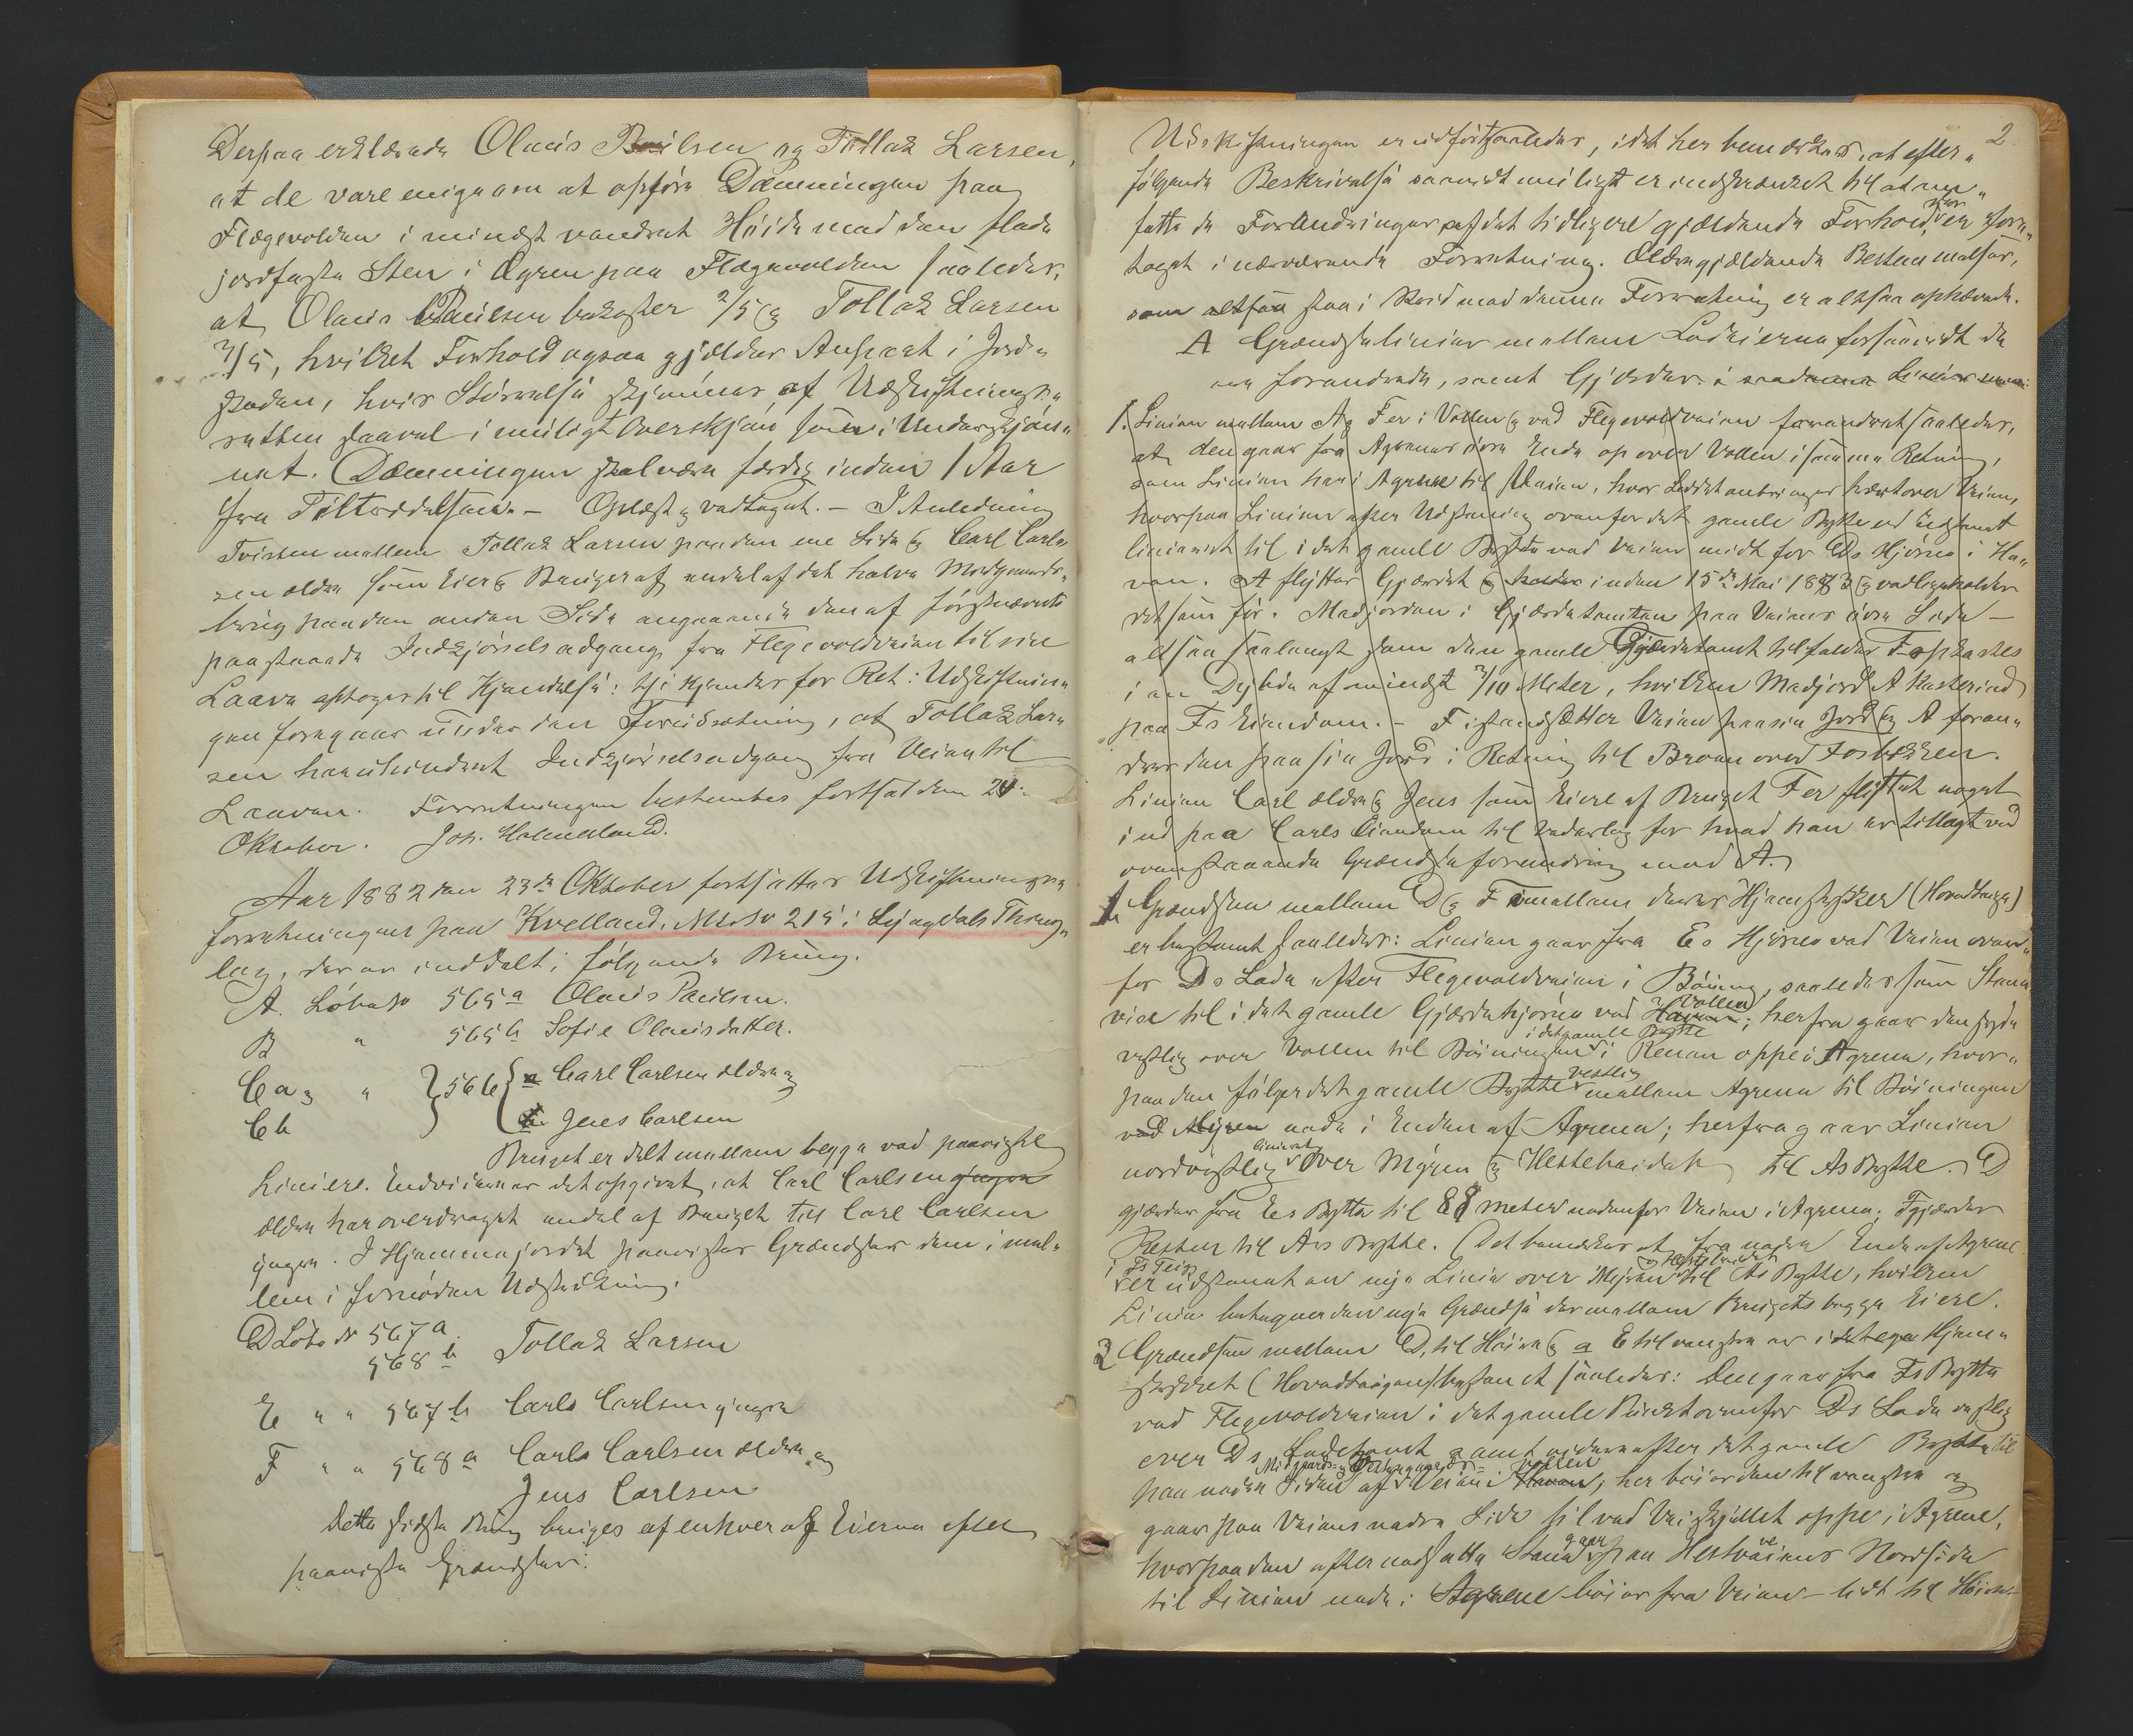 Derpaa erklærede Olaus Paulsen og Tollak Larsen,
at de vare enige om at opføre Dæmningen paa
Flegevolden i mindst vandret Høide med den flade
jordfaste Sten i Agren paa Flegevolden saaledes,
at Olaus Paulsen bekoster 2/5 og Tollak Larsen
3/5, hvilket Forhold ogsaa gjælder Ansvaret i Jord-
skaden, hvis Størrelse skjønnes af Udskiftnings-
retten saavel i mueligt Overskjøn som i Underskjøn-
net. Dæmningen skal være færdig inden 1 Aar
fra Tiltrædelsen. – Oplæst og vedtaget. – I Anledning
Tvisten mellem Tollak Larsen paa den ene Side og Carl Carl-
sen ældre som Eier og Bruger af endel af det halve Midgaards-
brug paa den anden Side angaaende den af førstnævnte
paastaaede Indkjørselsadgang fra Flegevoldveien til sin
Laave optoges til Kjendelse: Thi kjendes for Ret: Udskiftnin-
gen foregaar under den Forudsætning, at Tollak Lar-
sen har uhindret Indkjørselsadgang fra Veien til
Laaven. Forretningen bestemtes fortsat den 24de
Oktober. Joh. Halmeland.
Aar 1882 den 23de Oktober fortsattes Udskiftnings-
forretningen paa Kvelland, M. No 215 i Lyngdals Thing-
lag, der er inddelt i følgende Brug.
A. Løbe No 565a Olaus Paulsen.
B " 565b Sofie Olausdatter.
Ca og " } 566 { a Carl Carlsen ældre og
Cb b Jens Carlsen
Bruget er delt mellem begge ved paaviste
Linier. Endvidere er det opgivet, at Carl Carlsen yngre
ældre har overdraget endel af Bruget til Carl Carlsen
yngre. I Hjemmejordet paavistes Grændser dem imel-
lem i fornøden Udstrækning.
D Løbe No 567a
568b Tollak Larsen
E " " 567b Carls Carlsen yngre
F " " 568a Carls Carlsen ældre og
Jens Carlsen
Dette sidste Brug bruges af enhver af Eierne efter
paaviste Grændser.
2.
Udskiftningen er udført saaledes, idet her bemærkes, at efter-
følgende Beskrivelse saavidt mueligt er indskrænket til at om-
fatte de Forandringer af det tidligere gjældende Forhold, som er fore-
taget i nærværende Forretning. Ældregjældende Bestemmelser,
som altsaa staa i Strid med denne Forretning er altsaa ophævede.
A Grændselinier mellem Lodeierne forsaavidt de
ere forandrede, samt Gjærder i saadanne Linier
1. Linien mellem A og F er i Vollen og ved Flegevoldveien forandret saaledes,
at den gaar fra Agrenes øvre Ende op over Vollen i samme Retning,
som Linien har i Agrene til Veien, hvor Leddet anbringes tvertover Veien,
hvorpaa Linien efter Udstening ovenfor det gamle Bytte ud udstenet
lineret til i det gamle Bytte ved Veien midt for Ds Hjørne i Ha-
ven. A flytter Gjærdet inden 15de Mai 1883 og vedligeholder
det som før. Madjorden i Gjærdetomten paa Veiens øvre Side –
altsaa saalangt som den gamle Gjærdetomt tilfalder F opkastes
i en Dybde af mindst 3/10 Meter, hvilken Madjord A kaster ind
paa Fs Eiendom. – F istandsætter Veien paa sin Jord og A foran-
drer den paa sin Jord i Retning til Broen over Fosbækken.
Linien Carl ældre og Jens som Eiere af Bruget F er flyttet noget
ind paa Carls Eiendom til Vederlag for hvad han er tillagt ved
ovenstaaende Grændseforandring med A.
1. Grændsen mellem D og F imellem deres Hjemstykker (Hovedteige)
er bestemt saaledes: Linien gaar fra Es Hjørne ved Veien oven-
for Ds Lade efter Flegevoldveien i Bøining, saaledes som Stene
vise til i det gamle Gjærdehjørne ved Vollen; herfra gaar den syd-
vestlig over Vollen til Bøiningen i det gamle Bytte i Renen oppe i Agrene, hvor-
paa den følger det gamle Bytte vestlig mellem Agrene til Bøiningen
ved Myren nede i Enden af Agrene; herfra gaar Linien
nordvestlig lineret over Myren og Hestehaidet til As Bytte. D
gjærder fra Es Bytte til 88 Meter nedenfor Veien i Agrene; F gjærder
Resten til As Bytte. (Det bemærkes at fra nedre Ende af Agrene
i Fs Teig er udstenet en nye Linie over Myren og Hestehaidet til As Bytte, hvilken
Linie betegner den nye Grændse der mellem Brugets begge Eiere.
2 Grændsen mellem D, til Høire og E til venstre er i det Hjem-
stykket (Hovedteigen) bestemt saaledes: Den gaar fra Fs Bytte
ved Flegevoldveien i det gamle Punkt ovenfor Ds Lade vestlig
over Ds Ladetomt samt videre efter det gamle Bytte til
paa nedre Siden af Veien i Vollen; her bøier den til venstre og
gaar paa Veiens nedre Side til ved Veiskjellet oppe i Agrene,
hvorpaa den efter nedsatte Stene gaar paa Hestveiens Nordside
til Linien nede i Agrene bøier fra Veien – lidt til Høire